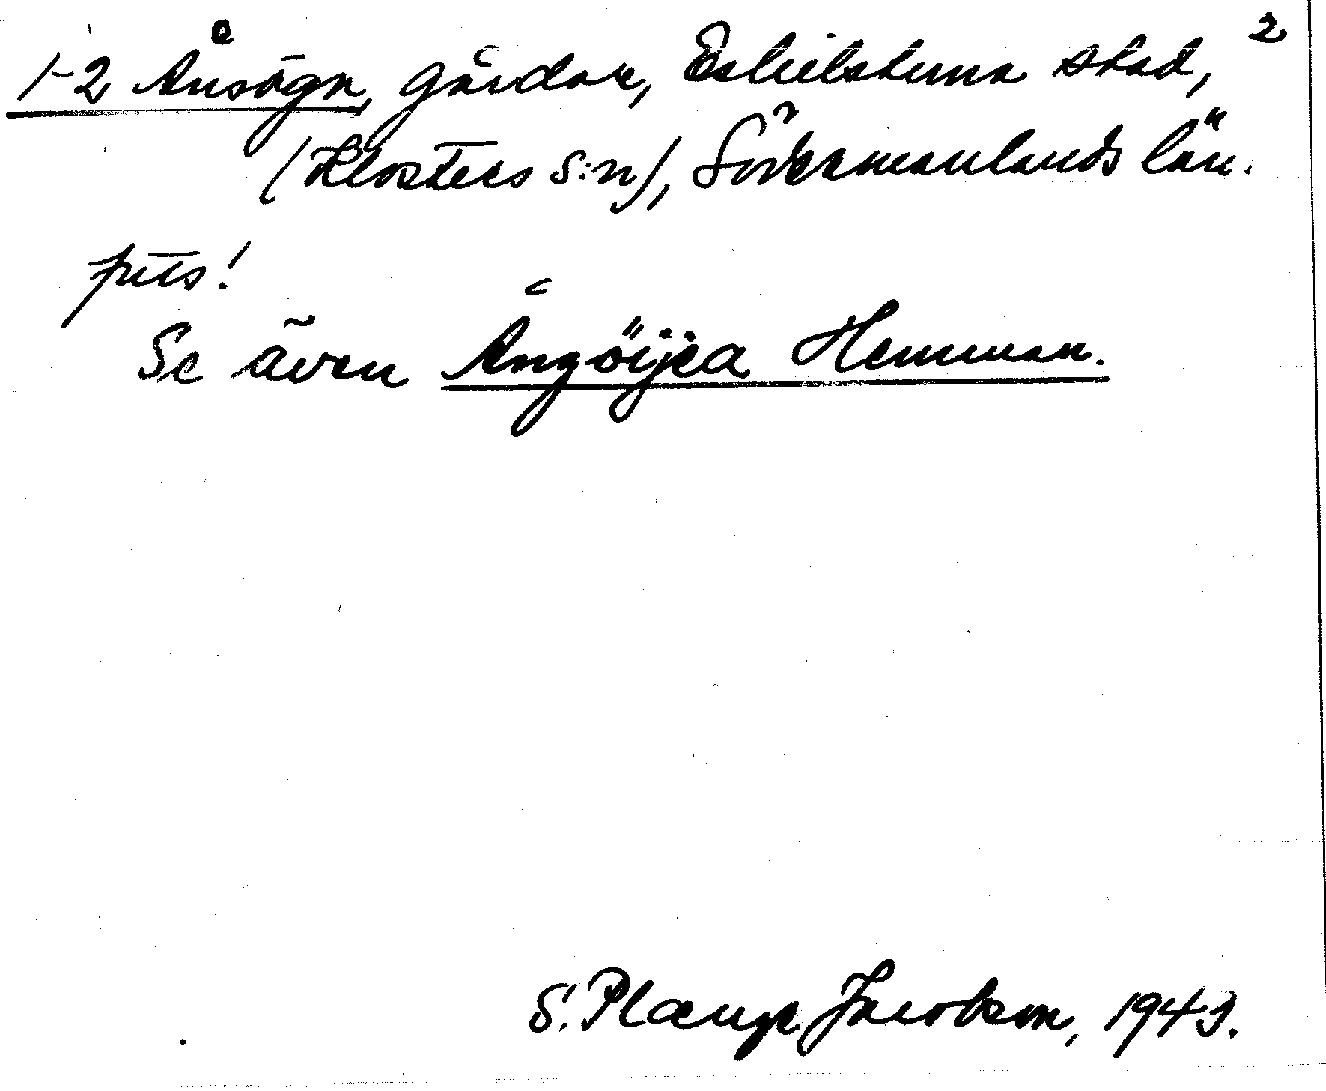 2
1-2 Ånsöga, gårdar, Eskilstuna stad,
(Klosters s:n), Södermanlands län.
pits!
Se även Ångöijea Hemman.
S. Plænge Jacobson, 1943.